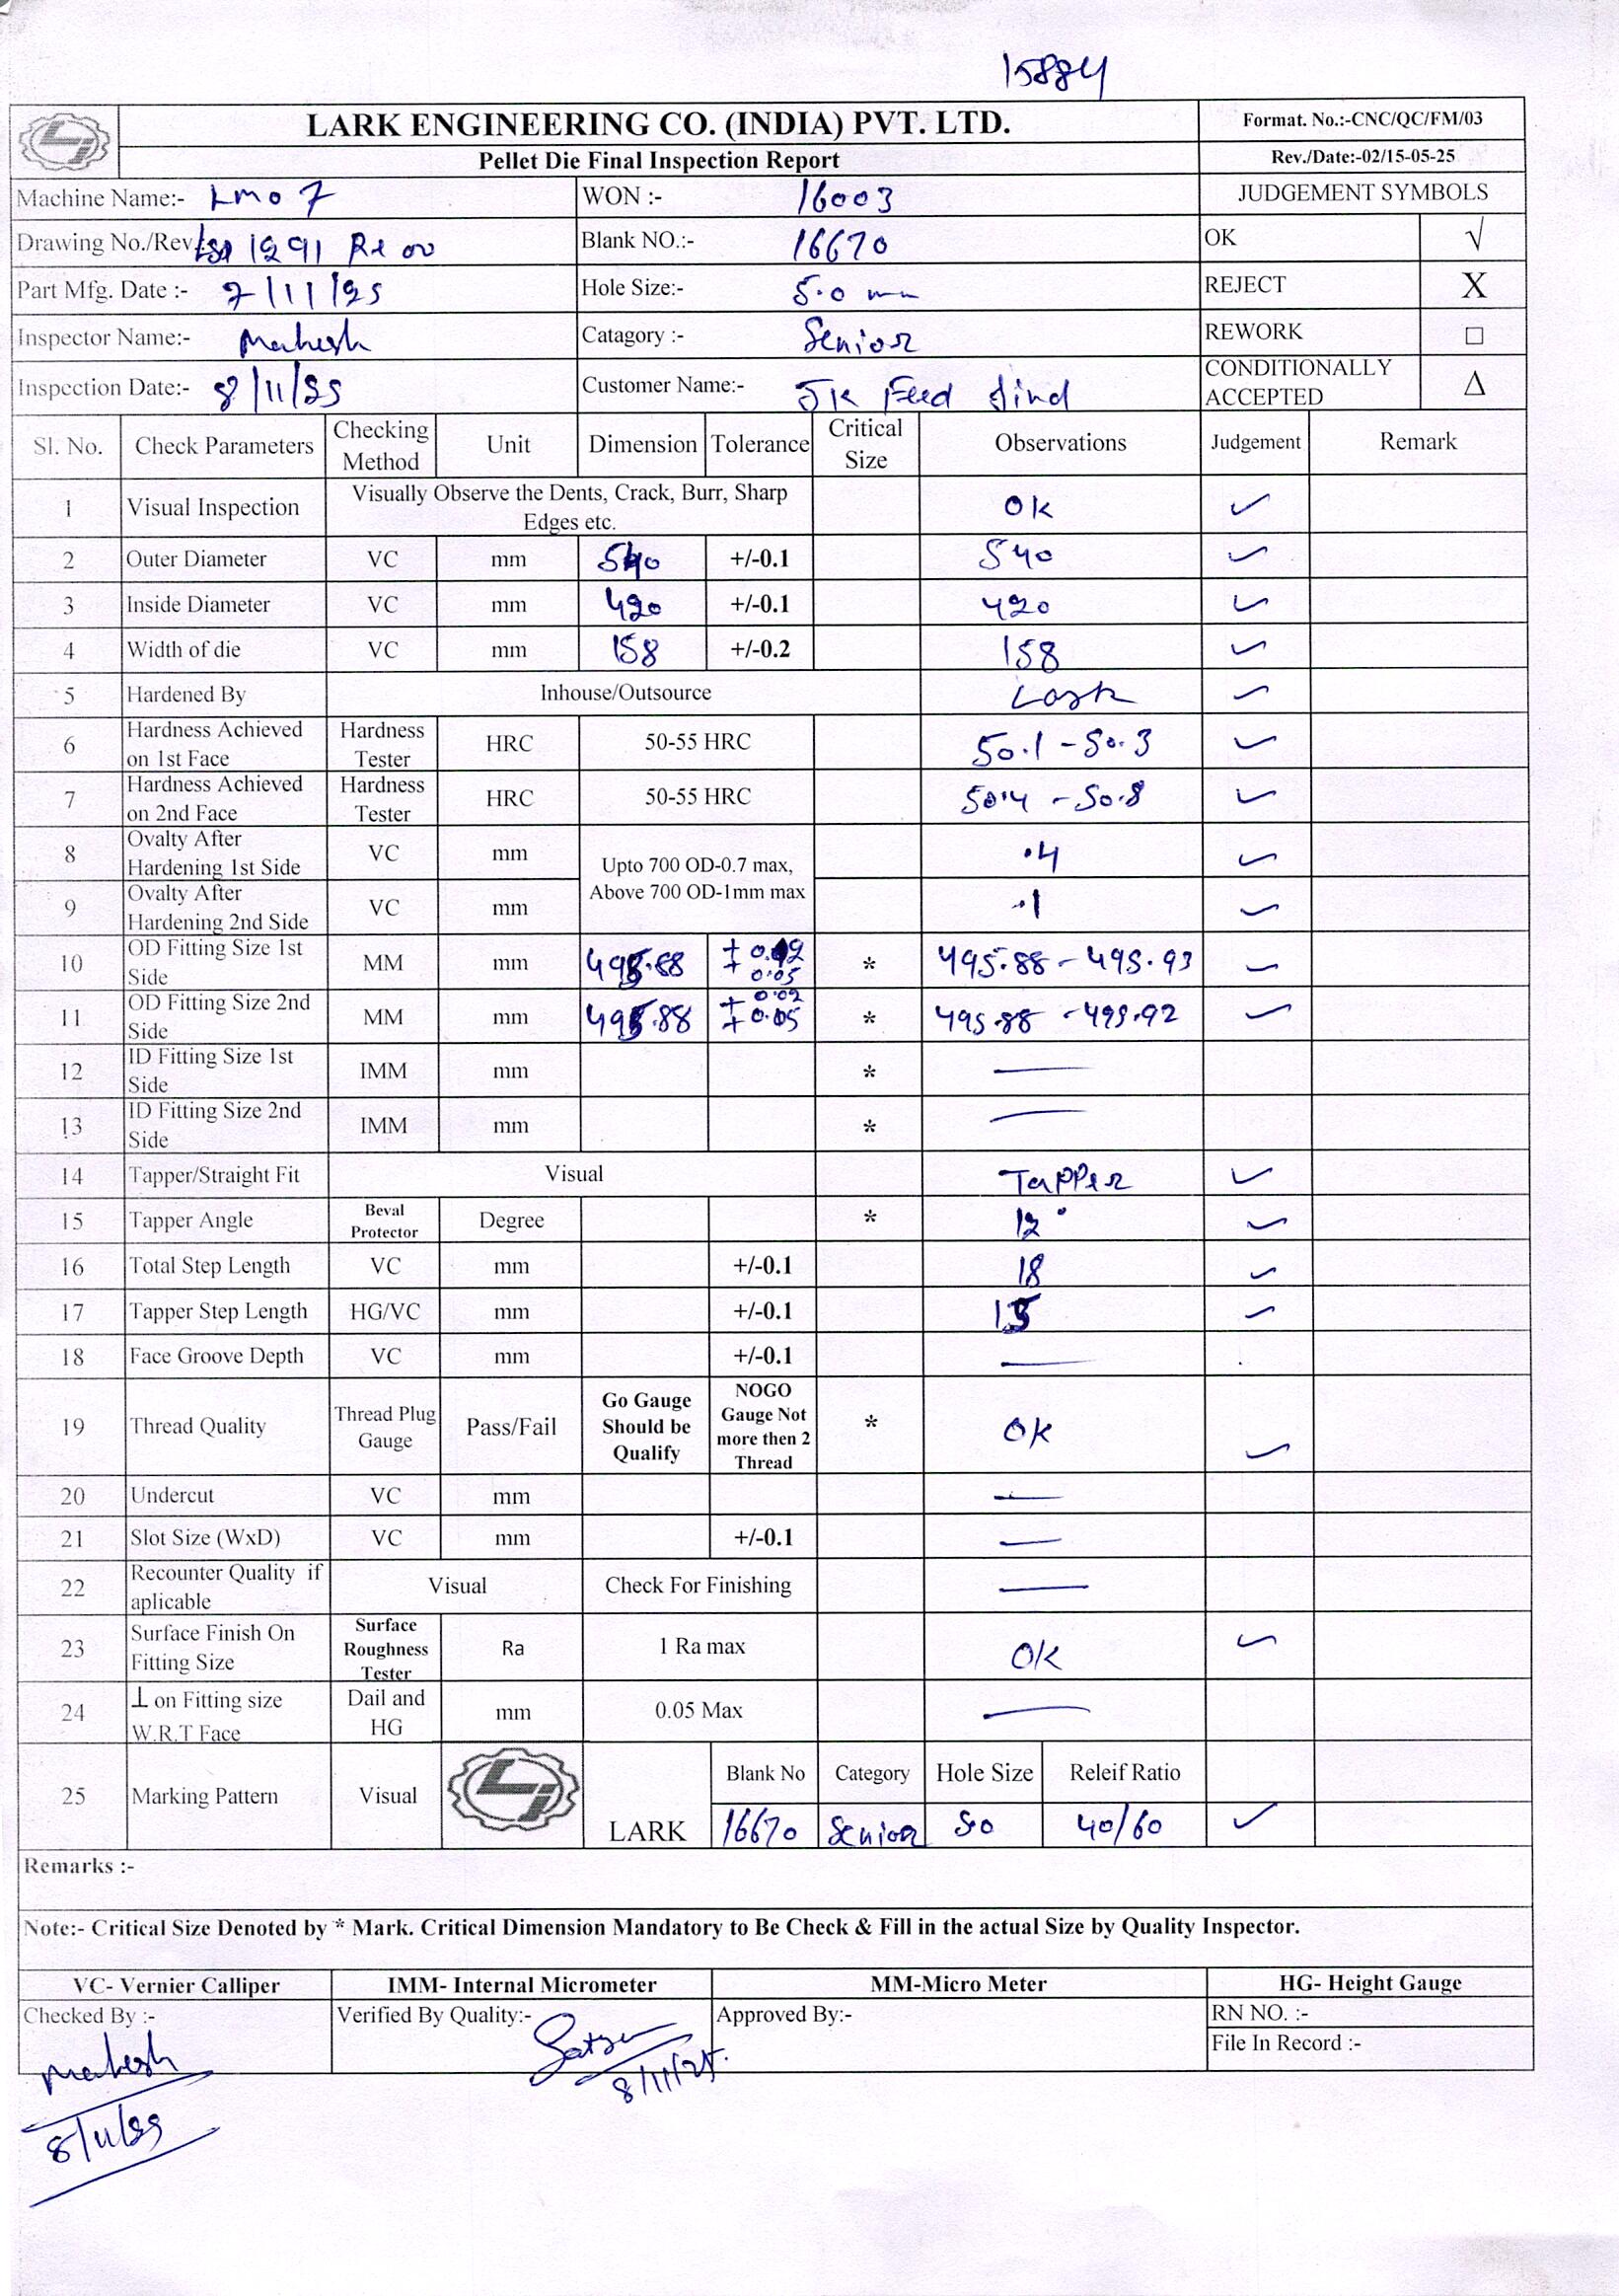 15884
LARK ENGINEERING CO. (INDIA) PVT. LTD.
Format. No.:-CNC/QC/FM/03
Pellet Die Final Inspection Report
Rev./Date:-02/15-05-25
Machine Name:- Lmo 7 WON :- 16003 JUDGEMENT SYMBOLS
Drawing No./Rev 1291 Re 00 Blank NO.:- 16670 OK √
Part Mfg. Date :- 7/11/25 Hole Size:- 5.0 mm REJECT X
Inspector Name:- Mahesh Catagory :- Senior REWORK □
Inspection Date:- 8/11/25 Customer Name:- JK Feed Jind CONDITIONALLY ACCEPTED Δ
Sl. No. Check Parameters Checking Method Unit Dimension Tolerance Critical Size Observations Judgement Remark
1 Visual Inspection Visually Observe the Dents, Crack, Burr, Sharp Edges etc. OK ✓
2 Outer Diameter VC mm 540 +/-0.1 540 ✓
3 Inside Diameter VC mm 420 +/-0.1 420 ✓
4 Width of die VC mm 158 +/-0.2 158 ✓
5 Hardened By Inhouse/Outsource Lark ✓
6 Hardness Achieved on 1st Face Hardness Tester HRC 50-55 HRC 50.1 - 50.3 ✓
7 Hardness Achieved on 2nd Face Hardness Tester HRC 50-55 HRC 50.4 - 50.8 ✓
8 Ovalty After Hardening 1st Side VC mm Upto 700 OD-0.7 max, Above 700 OD-1mm max .4 ✓
9 Ovalty After Hardening 2nd Side VC mm .1 ✓
10 OD Fitting Size 1st Side MM mm 495.88 + 0.02 + 0.05 * 495.88 - 495.93 ✓
11 OD Fitting Size 2nd Side MM mm 495.88 + 0.02 + 0.05 * 495.88 - 495.92 ✓
12 ID Fitting Size 1st Side IMM mm * —
13 ID Fitting Size 2nd Side IMM mm * —
14 Tapper/Straight Fit Visual Tapper ✓
15 Tapper Angle Beval Protector Degree * 12° ✓
16 Total Step Length VC mm +/-0.1 18 ✓
17 Tapper Step Length HG/VC mm +/-0.1 15 ✓
18 Face Groove Depth VC mm +/-0.1 —
19 Thread Quality Thread Plug Gauge Pass/Fail Go Gauge Should be Qualify NOGO Gauge Not more then 2 Thread * OK ✓
20 Undercut VC mm —
21 Slot Size (WxD) VC mm +/-0.1 —
22 Recounter Quality if aplicable Visual Check For Finishing —
23 Surface Finish On Fitting Size Surface Roughness Tester Ra 1 Ra max OK ✓
24 ⊥ on Fitting size W.R.T Face Dail and HG mm 0.05 Max —
25 Marking Pattern Visual LARK Blank No Category Hole Size Releif Ratio
16670 Senior 5.0 40/60 ✓
Remarks :-
Note:- Critical Size Denoted by * Mark. Critical Dimension Mandatory to Be Check & Fill in the actual Size by Quality Inspector.
VC- Vernier Calliper IMM- Internal Micrometer MM-Micro Meter HG- Height Gauge
Checked By :- Verified By Quality:- Approved By:- RN NO. :-
File In Record :-
Mahesh
8/11/25
8/11/25